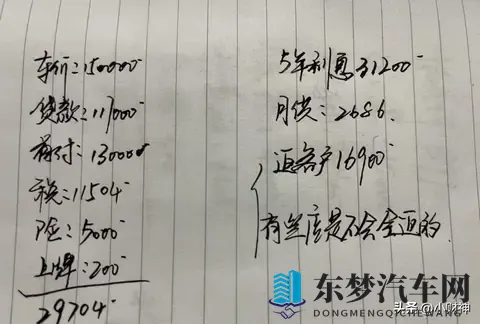 车价:150000
贷款:117000
首付:13000
税:11504
险:5000
上牌:200
29704
5年利息31200
月供:2686.
返客户16900
有些店是不会全返的.
东梦汽车网
DONGMENGQICHEWANG
头条 @小财神